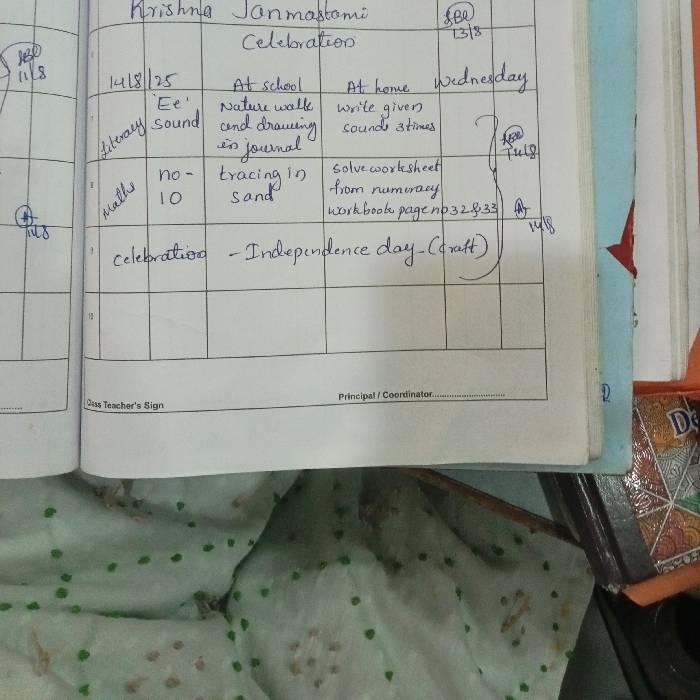 Krishna Janmastami
13/8
Celebration
11/8
14/8/25 At school At home Wednesday
Literacy 'Ee' sound Nature walk and drawing in journal write given sound 3 times
14/8
Maths no-10 tracing in sand solve worksheet from numeracy workbook page no 32 & 33
14/8
14/8
celebration - Independence day - (craft)
10
Class Teacher's Sign
Principal / Coordinator
De